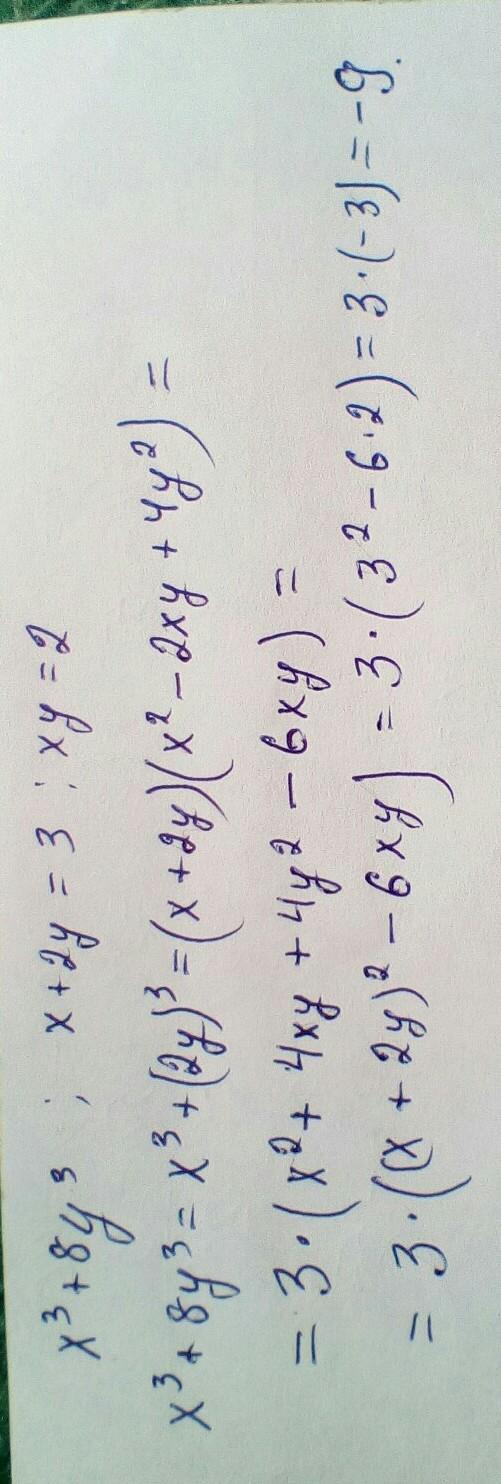 x³+8y³ ; x+2y=3 ; xy=2
x³+8y³=x³+(2y)³=(x+2y)(x²-2xy+4y²)=
=3·(x²+4xy+4y²-6xy)=
=3·((x+2y)²-6xy)=3·(3²-6·2)=3·(-3)=-9.